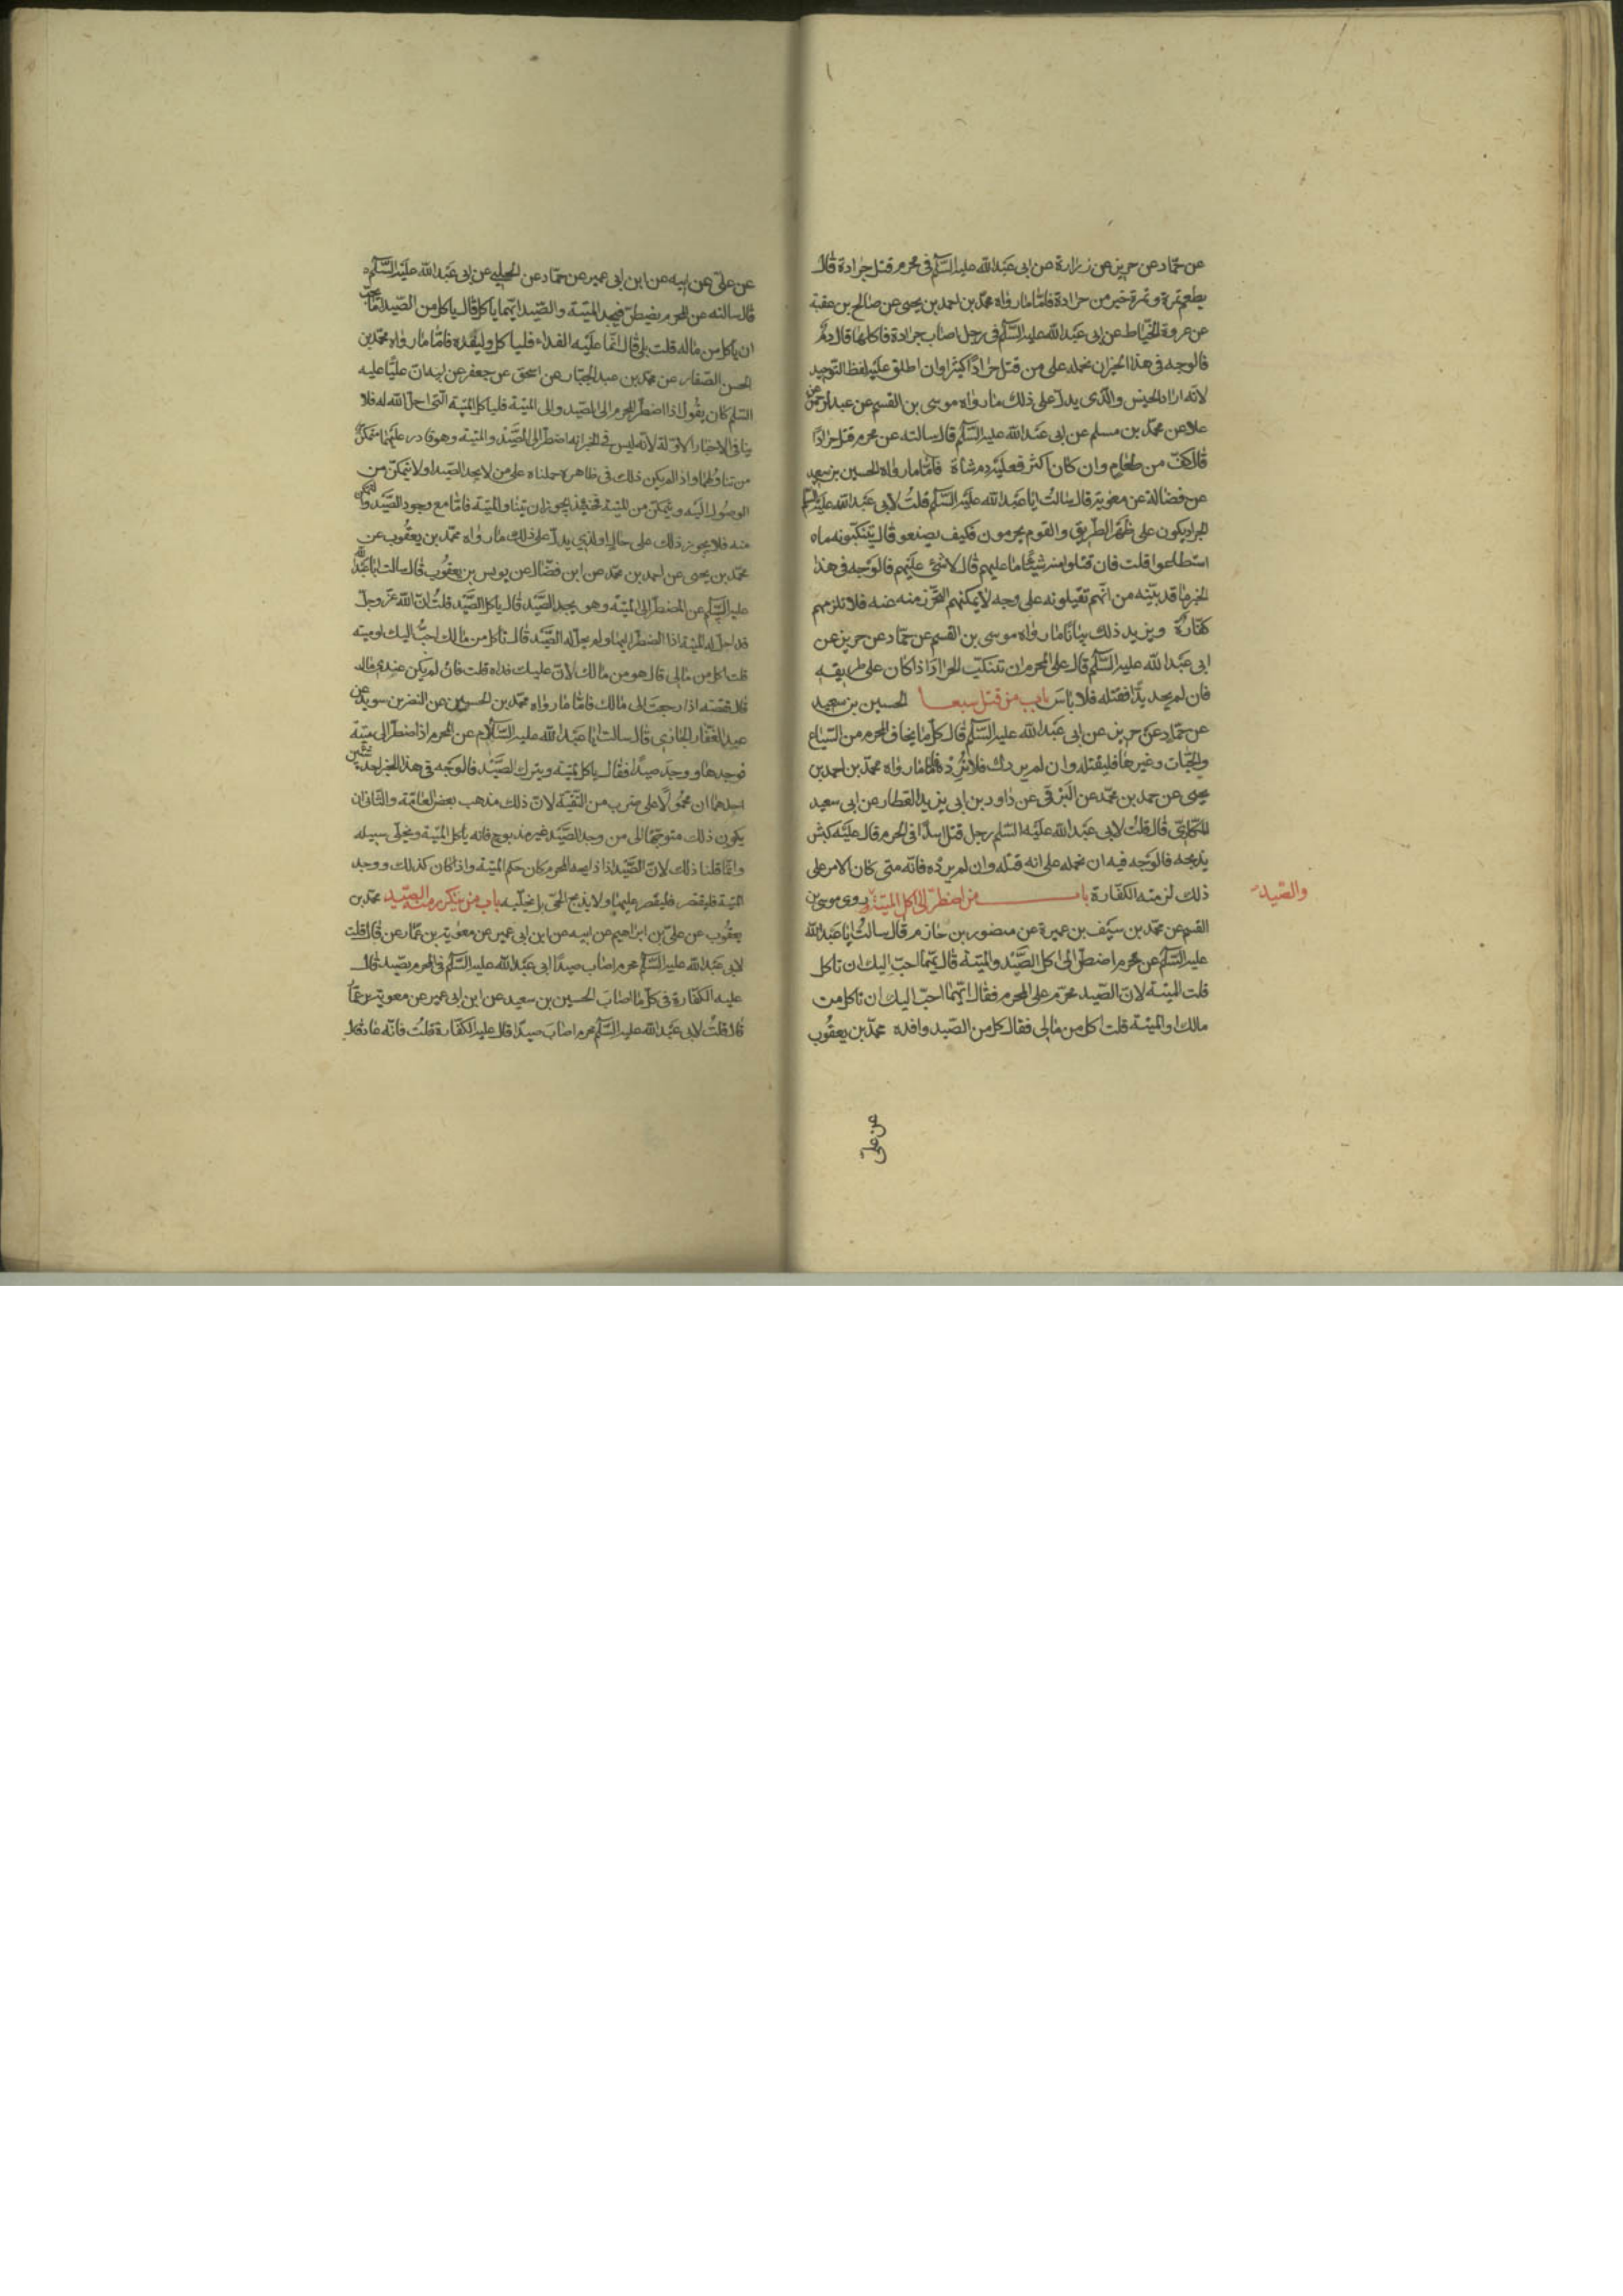 عن حمّاد عن حريز عن زرارة عن ابى عبد الله عليه السلم فى محرم قتل جرادة قال
يطعم تمرة وتمرة خير من جرادة فامّا ما رواه محمّد بن احمد بن يحيى عن صالح بن عقبة
عن عروة الخيّاط عن ابى عبد الله عليه السلم فى رجل اصاب جرادة فاكلها قال دم
فالوجه فى هذا الخبر ان نحمله على من قتل جراداً كثيرا وان اطلق عليه لفظ التوحيد
لانّه اراد الجنس والّذى يدلّ على ذلك ما رواه موسى بن القسم عن عبد الرحمن عن
علا عن محمّد بن مسلم عن ابى عبد الله عليه السلم قال سالته عن محرم قتل جراداً
قال كفّ من طعام وان كان اكثر فعليه دم شاة فامّا ما رواه الحسين بن سعيد
عن فضالة عن معوية قال سالت ابا عبد الله عليه السلم قلت لابى عبد الله عليه السلم
الجراد يكون على ظهر الطريق والقوم محرمون فكيف يصنعو قال يتنكّبونه ما
استطاعوا قلت فان قتلوا منه شيئا ما عليهم قال لا شئ عليهم فالوجه فى هذا
الخبر ما قد بيّنه من انّهم تقيلونه على وجه لا يمكنهم التحّرز منه فلا تلزمهم
كفّارة ويزيد ذلك بيانا ما رواه موسى بن القسم عن حمّاد عن حريز عن
ابى عبد الله عليه السلم قال على المحرم ان تنكّب الجراد اذا كان على طريقه
فان لم يجد بدّا فقتله فلا باس باب من قتل سبعا الحسين بن سعيد
عن حمّاد عن حريز عن ابى عبد الله عليه السلم قال كلّ ما يخاف المحرم من السّباع
والحيّات وغيرها فليقتله وان لم يردك فلا تُرِدْه فامّا ما رواه محمّد بن احمد بن
يحيى عن حمد بن محمّد عن البرقى عن داود بن ابى يزيد القطار عن ابى سعيد
المكارىّ قال قلت لابى عبد الله عليه السّلم رجل قتل اسدًا فى الحرم قال عليه كبش
يذبحه فالوجه فيه ان نحمله على انه قتله وان لم يرده فانّه متى كان الامر على
ذلك لزمته الكفّارة باب من اضطرّ الى اكل الميتة روى موسى بن
والصّيد
القسم عن محمّد بن سيف بن عميرة عن منصور بن حازم قال سالت ابا عبد الله
عليه السلم عن محرم اضطرّ الى اكل الصّيد والميتة قال ايّهما احبّ اليك ان تاكل
قلت الميتة لانّ الصّيد محرّم على المحرم فقال ايّهما احبّ اليك ان تاكل من
مالك او الميتة قلت اكل من مالى فقال كل من الصّيد وافده محمّد بن يعقوب
عن علىّ
عن علىّ عن ابيه عن ابن ابى عمير عن حمّاد عن الحلبى عن ابى عبد الله عليه السّلم
قال سالته عن المحرم يضطرّ فيجد الميتة والصّيد ايّهما ياكل قال ياكل من الصّيد اما يحبّ
ان ياكل من ماله قلت بلى قال انّما عليه الفداء فلياكل وليفده فامّا ما رواه محمّد بن
الحسن الصّفار عن محمّد بن عبد الجبّار عن اسحق عن جعفر عن ابيه انّ عليّا عليه
السّلم كان يقول اذا اضطرّ المحرم الى الصّيد والى الميتة فلياكل الميتة الّتى احلّ الله له فلا
ينافى الاخبار الاوّلة لانّه ليس فى الخبر انه اضطرّ الى الصّيد والميتة وهو قادر عليهما متمكّن
من تناولهما واذا لم يكن ذلك فى ظاهره حملناه على من لا يجد الصّيد او لا يتمكّن من
الوصول اليه ويتمكّن من الميتة فحينئذ يجوز ان يتناول الميتة فامّا مع وجود الصّيد والتمكّن
منه فلا يجوز ذلك على حال والذى يدلّ على ذلك ما رواه محمّد بن يعقوب عن
محمّد بن يحيى عن احمد بن محمّد عن ابن فضّال عن يونس بن يعقوب قال سالت ابا عبد الله
عليه السلم عن المضطرّ الى الميتة وهو يجد الصّيد قال ياكل الصّيد قلت انّ الله عزّ وجلّ
قد احلّ له الميتة اذا اضطرّ اليها ولم يحلّ له الصّيد قال تاكل من مالك احبّ اليك او ميتة
قلت اكل من مالى قال هو من مالك لانّ عليك فداه قلت فان لم يكن عندى مال
قال تقضيه اذا رجعت الى مالك فامّا ما رواه محمّد بن الحسين عن النضر بن سويد عن
عبد الغفّار الجازى قال سالت ابا عبد الله عليه السّلام عن المحرم اذا اضطرّ الى ميتة
فوجدها ووجد صيدًا فقال ياكل الميتة ويترك الصّيد فالوجه فى هذا الخبر احد شيئين
احدهما ان محمولًا على ضرب من التقيّة لانّ ذلك مذهب بعض العامّة والثانى ان
يكون ذلك متوجّهًا الى من وجد الصّيد غير مذبوح فانه ياكل الميتة ويخلّى سبيله
وانّما قلنا ذلك لانّ الصّيد اذا ذبحه المحرم كان حكم الميتة واذا كان كذلك ووجد
الميتة فليقتصر عليها ولا يذبح الحىّ بل يخلّيه باب من يتكرّر منه الصّيد محمّد بن
يعقوب عن علىّ بن ابراهيم عن ابيه عن ابن ابى عمير عن معوية بن عمّار عن قال قلت
لابى عبد الله عليه السلم محرم اصاب صيدًا ابى عبد الله عليه السلم فى المحرم يصيد قال
عليه الكفّارة فى كلّ ما اصاب الحسين بن سعيد عن ابن ابى عمير عن معوية بن عمّار
قال قلت لابى عبد الله عليه السلم محرم اصاب صيدًا قال عليه الكفّارة قلت فانّه عاد قال